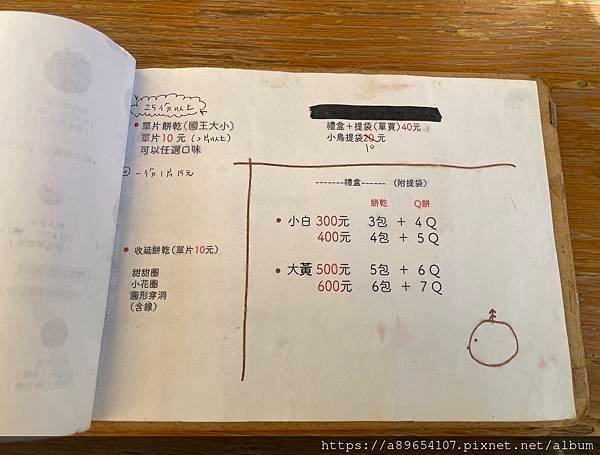 25份以上
• 單片餅乾(國王大小)
單片10元(2片以上)
可以任選口味
一份1片15元
• 收延餅乾(單片10元)
甜甜圈
小花圈
圓形穿洞
(含線)
禮盒+提袋(單買)40元
小鳥提袋20元
10
-------禮盒------ (附提袋)
餅乾 Q餅
• 小白 300元 3包 + 4Q
400元 4包 + 5Q
• 大黃 500元 5包 + 6Q
600元 6包 + 7Q
https://a89654107.pixnet.net/album